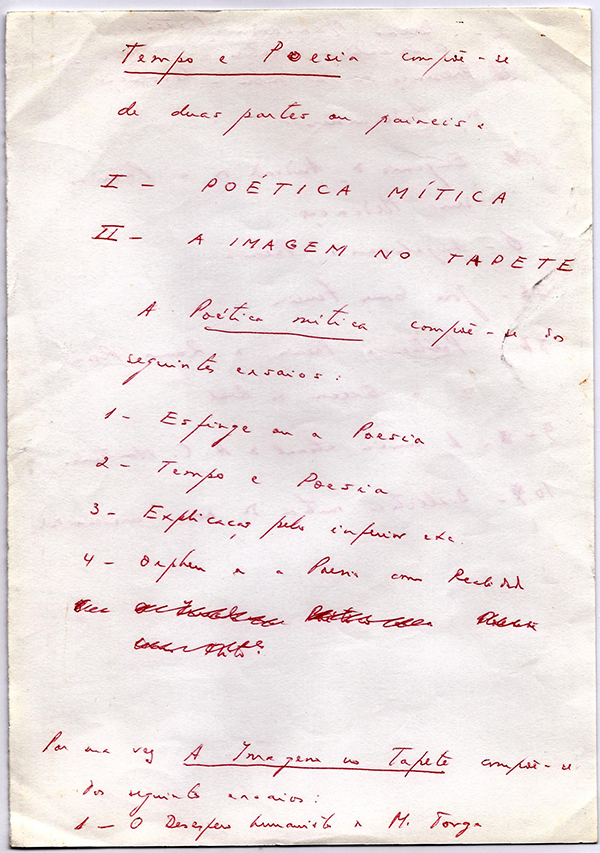 Tempo e Poesia compõe-se
de duas partes ou paineis:
I - POÉTICA MÍTICA
II - A IMAGEM NO TAPETE
A Poética mítica compõe-se dos
seguintes ensaios:
1 - Esfinge ou a Poesia
2 - Tempo e Poesia
3 - Explicação pelo inferior etc.
4 - Orpheu ou a Poesia como Realidade
Por sua vez A Imagem no Tapete compõe-se
dos seguintes ensaios:
1 - O Desespero humanista de M. Torga